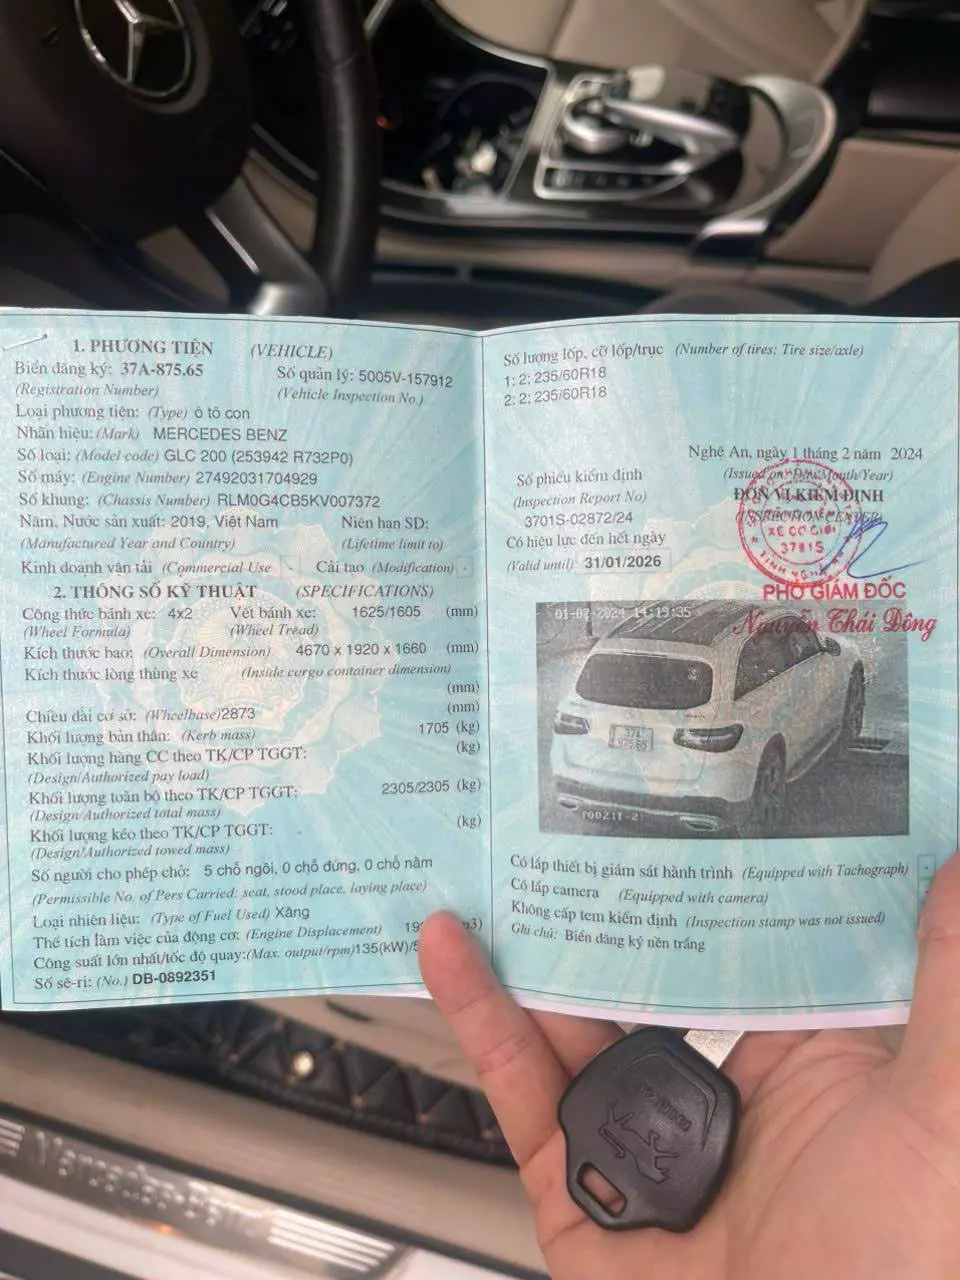 1. PHƯƠNG TIỆN (VEHICLE)
Biển đăng ký: 37A-875.65 Số quản lý: 5005V-157912
(Registration Number) (Vehicle Inspection No.)
Loại phương tiện: (Type) ô tô con
Nhãn hiệu: (Mark) MERCEDES BENZ
Số loại: (Model code) GLC 200 (253942 R732P0)
Số máy: (Engine Number) 27492031704929
Số khung: (Chassis Number) RLM0G4CB5KV007372
Năm, Nước sản xuất: 2019, Việt Nam Niên hạn SD:
(Manufactured Year and Country) (Lifetime limit to)
Kinh doanh vận tải (Commercial Use - Cải tạo (Modification) -
2. THÔNG SỐ KỸ THUẬT (SPECIFICATIONS)
Công thức bánh xe: 4x2 Vết bánh xe: 1625/1605 (mm)
(Wheel Formula) (Wheel Tread)
Kích thước bao: (Overall Dimension) 4670 x 1920 x 1660 (mm)
Kích thước lòng thùng xe (Inside corgo container dimension)
(mm)
Chiều dài cơ sở: (Wheelbase) 2873 (mm)
Khối lượng bản thân: (Kerb mass) 1705 (kg)
Khối lượng hàng CC theo TK/CP TGGT: (kg)
(Design/Authorized pay load)
Khối lượng toàn bộ theo TK/CP TGGT: 2305/2305 (kg)
(Design/Authorized total mass)
Khối lượng kéo theo TK/CP TGGT: (kg)
(Design/Authorized towed mass)
Số người cho phép chở: 5 chỗ ngồi, 0 chỗ đứng, 0 chỗ nằm
(Permissible No. of Pers Carried: seat, stood place, laying place)
Loại nhiên liệu: (Type of Fuel Used) Xăng
Thể tích làm việc của động cơ: (Engine Displacement)
Công suất lớn nhất/tốc độ quay: (Max. output/rpm) 135(kW)/
Số sê-ri: (No.) DB-0892351
Số lượng lốp, cỡ lốp/trục (Number of tires; Tire size/axle)
1: 2; 235/60R18
2: 2; 235/60R18
Nghệ An, ngày 1 tháng 2 năm 2024
(Issued on: Day/Month/Year)
Số phiếu kiểm định
(Inspection Report No)
3701S-02872/24
ĐƠN VỊ KIỂM ĐỊNH
(INSPECTION CENTER)
XE CƠ GIỚI
3701S
Có hiệu lực đến hết ngày
(Valid until) 31/01/2026
PHÓ GIÁM ĐỐC
Nguyễn Thái Đông
01-02-2024 14:19:35
37A
875.65
Có lắp thiết bị giám sát hành trình (Equipped with Tachograph) -
Có lắp camera (Equipped with camera) -
Không cấp tem kiểm định (Inspection stamp was not issued)
Ghi chú: Biển đăng ký nền trắng
Mercedes-Benz